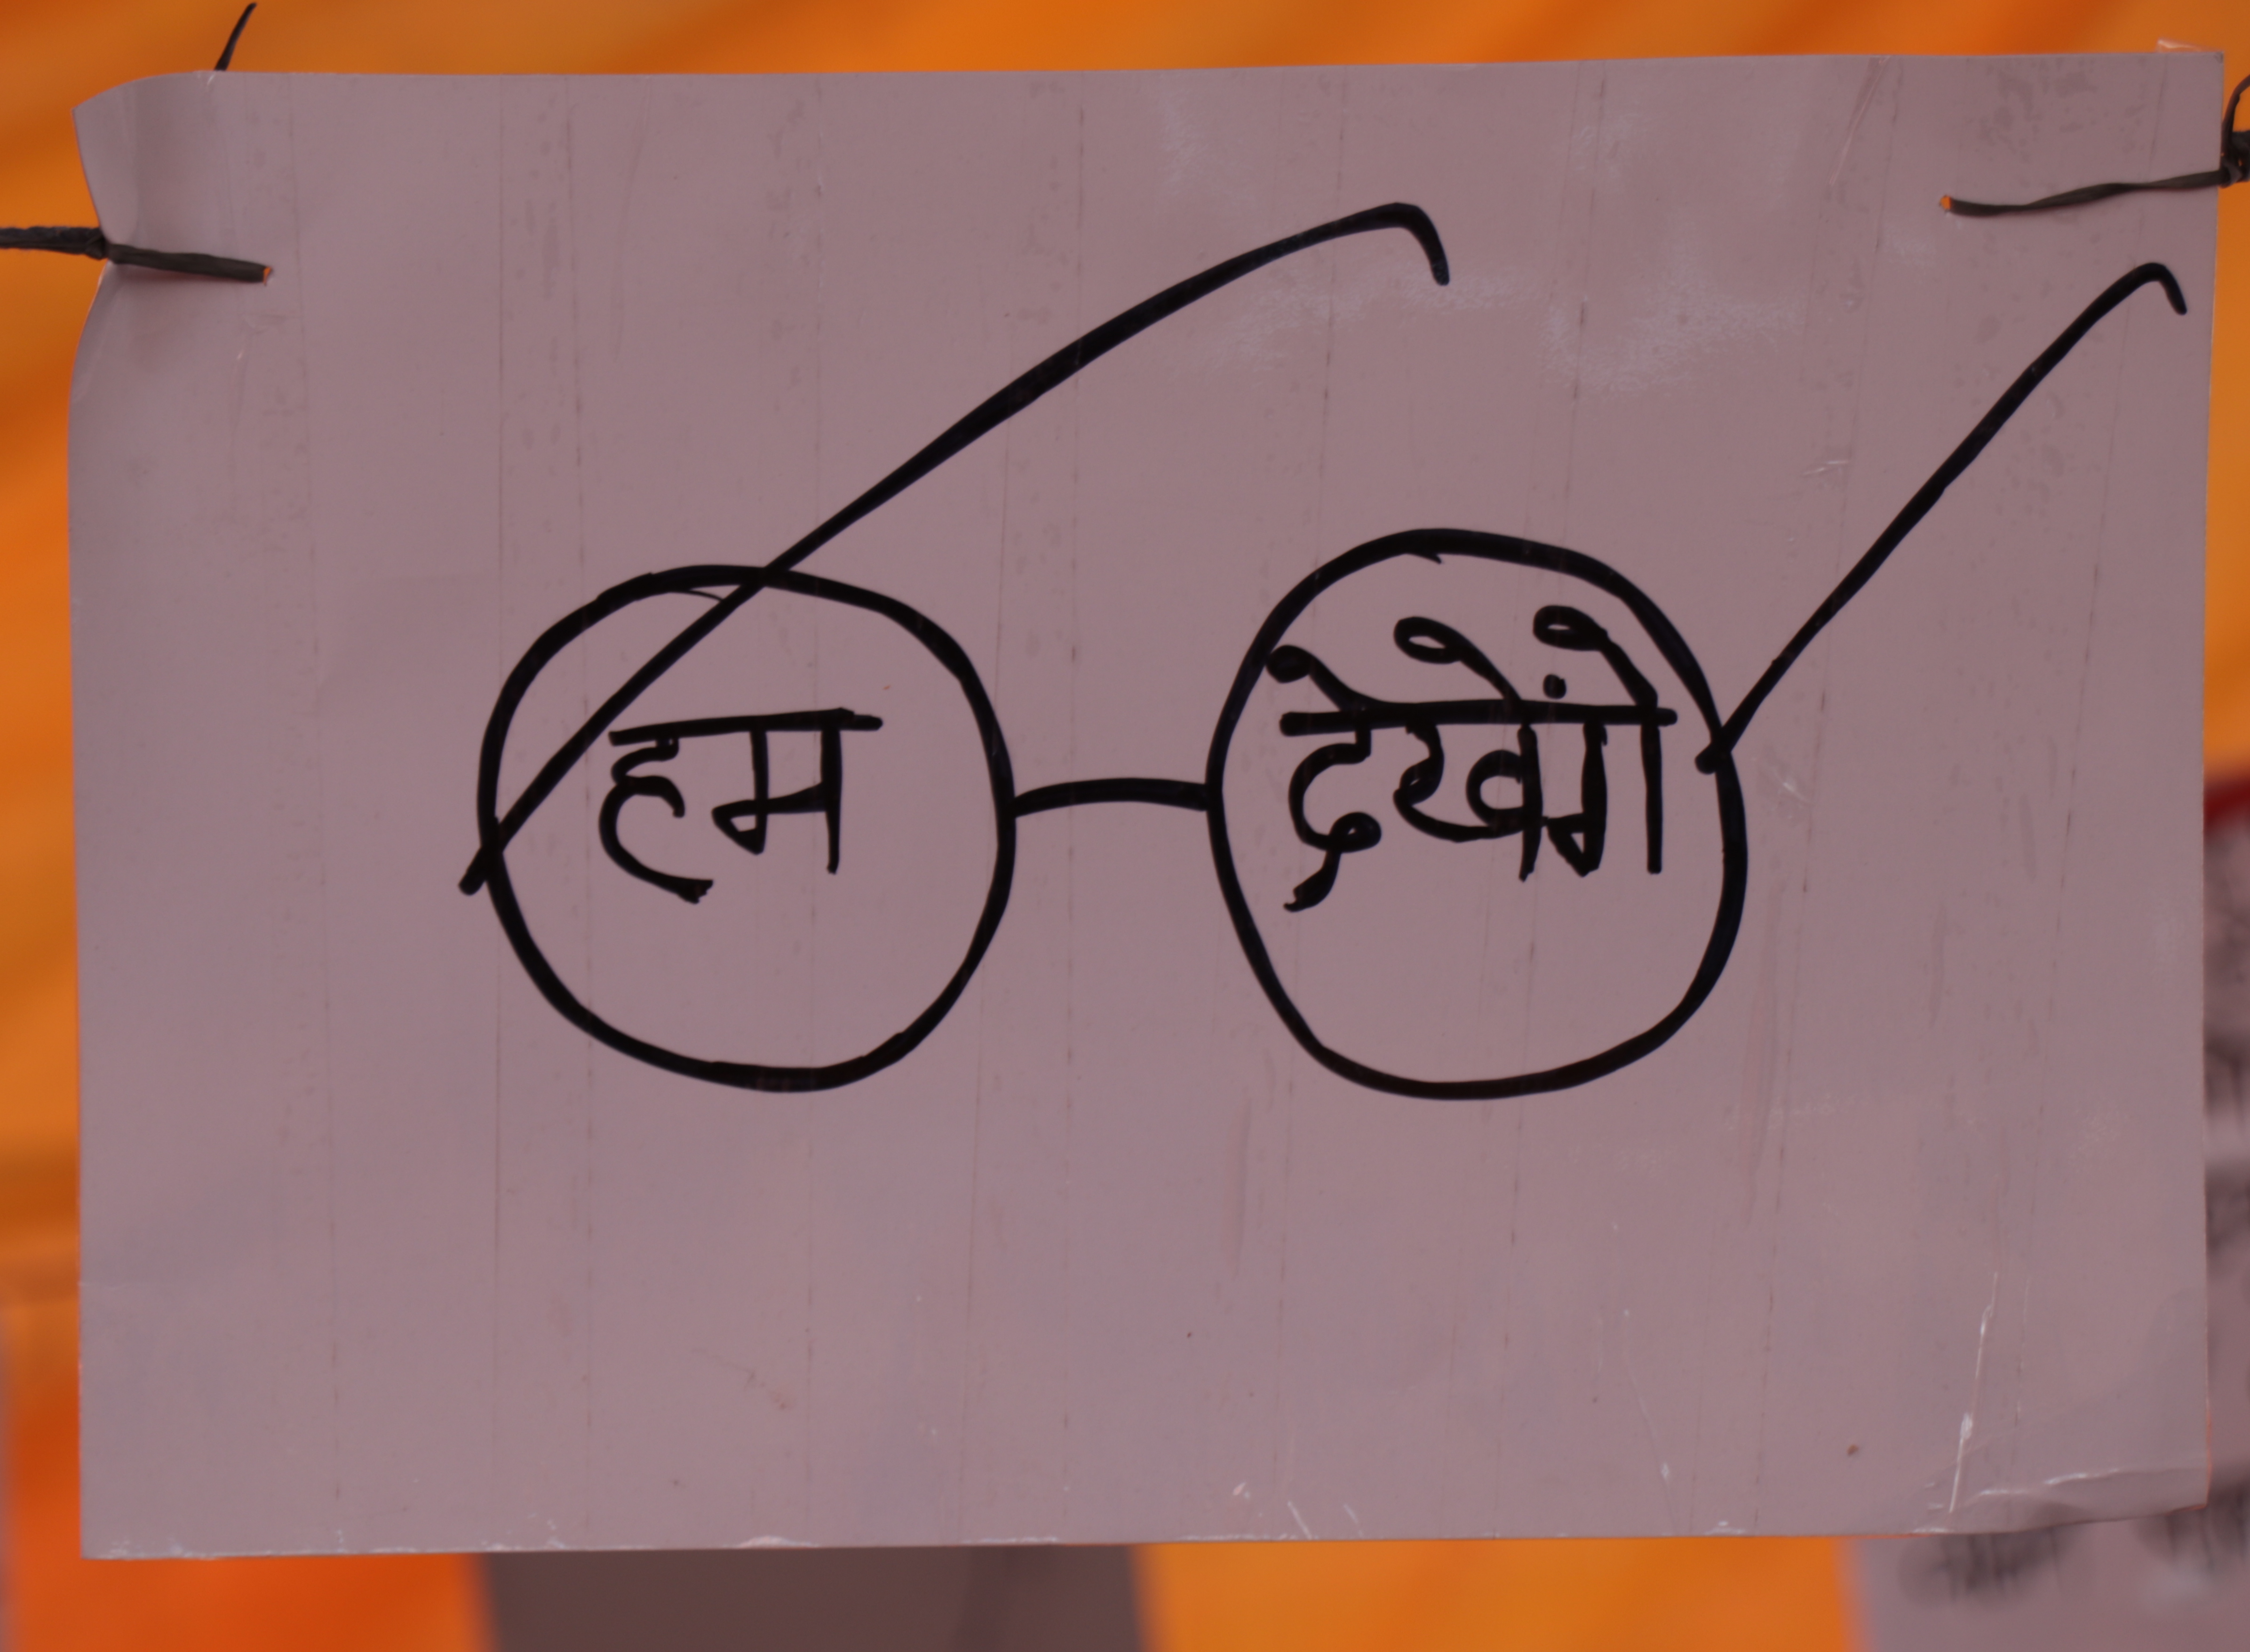 हम देखेंगे